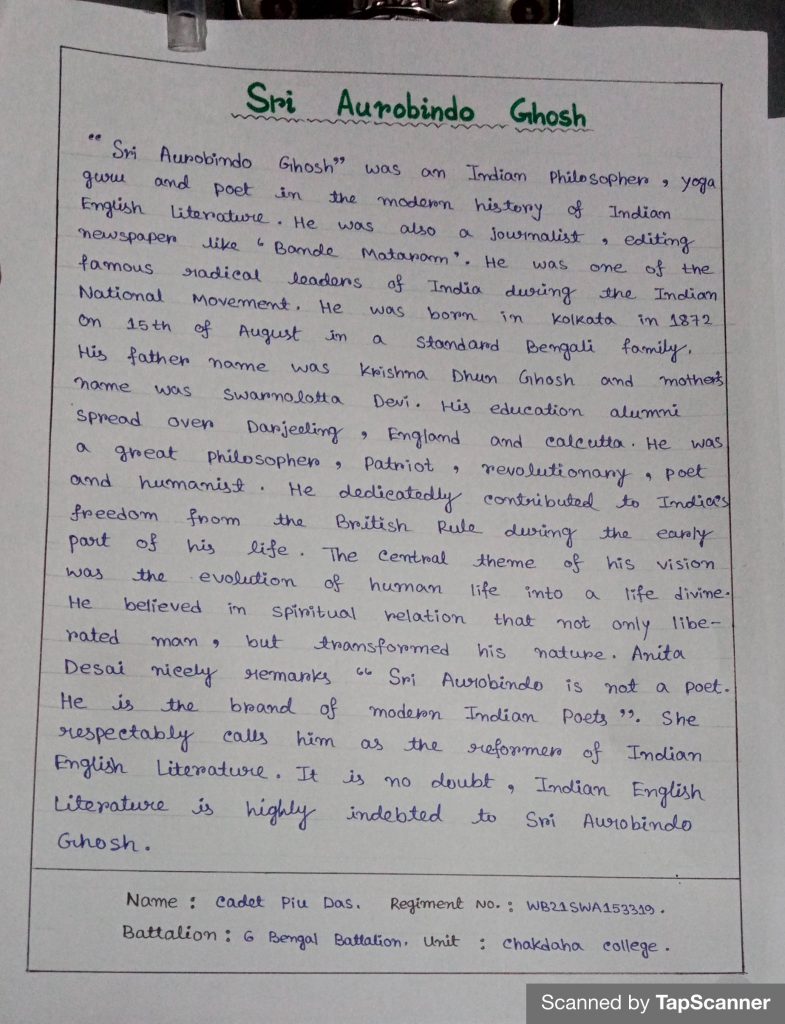 Sri Aurobindo Ghosh
"Sri Aurobindo Ghosh" was an Indian Philosopher, yoga
guru and poet in the modern history of Indian
English Literature. He was also a journalist, editing
newspaper like "Bande Mataram". He was one of the
famous radical leaders of India during the Indian
National Movement. He was born in Kolkata in 1872
on 15th of August in a standard Bengali family.
His father name was Krishna Dhun Ghosh and mother's
name was Swarnolotta Devi. His education alumni
spread over Darjeeling, England and calcutta. He was
a great philosopher, Patriot, revolutionary, poet
and humanist. He dedicatedly contributed to India's
freedom from the British Rule during the early
part of his life. The central theme of his vision
was the evolution of human life into a life divine.
He believed in spiritual relation that not only libe-
rated man, but transformed his nature. Anita
Desai nicely remarks "Sri Aurobindo is not a poet.
He is the brand of modern Indian Poets". She
respectably calls him as the reformer of Indian
English Literature. It is no doubt, Indian English
Literature is highly indebted to Sri Aurobindo
Ghosh.
Name : Cadet Piu Das. Regiment No. : WB21SWA153319.
Battalion : 6 Bengal Battalion. Unit : Chakdaha college.
Scanned by TapScanner